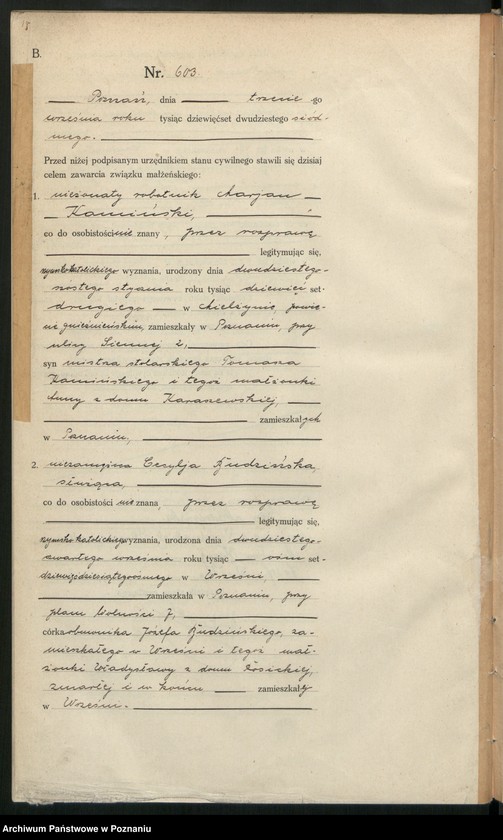 B.
Nr. 603
Poznań, dnia trzecie go
września roku tysiąc dziewięćset dwudziestego siód-
mego.
Przed niżej podpisanym urzędnikiem stanu cywilnego stawili się dzisiaj
celem zawarcia związku małżeńskiego:
1. nieżonaty robotnik Marjan
Kamiński,
co do osobistości nie znany, przez rozprawę
legitymując się,
rzymskokatolickiego wyznania, urodzony dnia dwudziestego-
szóstego stycznia roku tysiąc dziewięć set-
drugiego w Mielżynie, powie-
cie gnieźnieńskim, zamieszkały w Poznaniu, przy
ulicy Siennej 2,
syn mistrza stolarskiego Tomasza
Kamińskiego i tegoż małżonki
Anny z domu Karaszewskiej,
zamieszkałych
w Poznaniu,
2. niezamężna Cecylja Budzińska,
co do osobistości nie znana, przez rozprawę
legitymując się,
rzymsko katolickiego wyznania, urodzona dnia dwudziestego-
czwartego września roku tysiąc ośm set-
dziewięćdziesiątegoósmego w Wrześni,
zamieszkała w Poznaniu, przy
placu Wolności 7,
córka Józefa Budzińskiego, za-
mieszkałego w Wrześni i tegoż mał-
żonki Władysławy z domu Łosickiej,
zmarłej i w końcu zamieszkałej
w Wrześni.
Archiwum Państwowe w Poznaniu